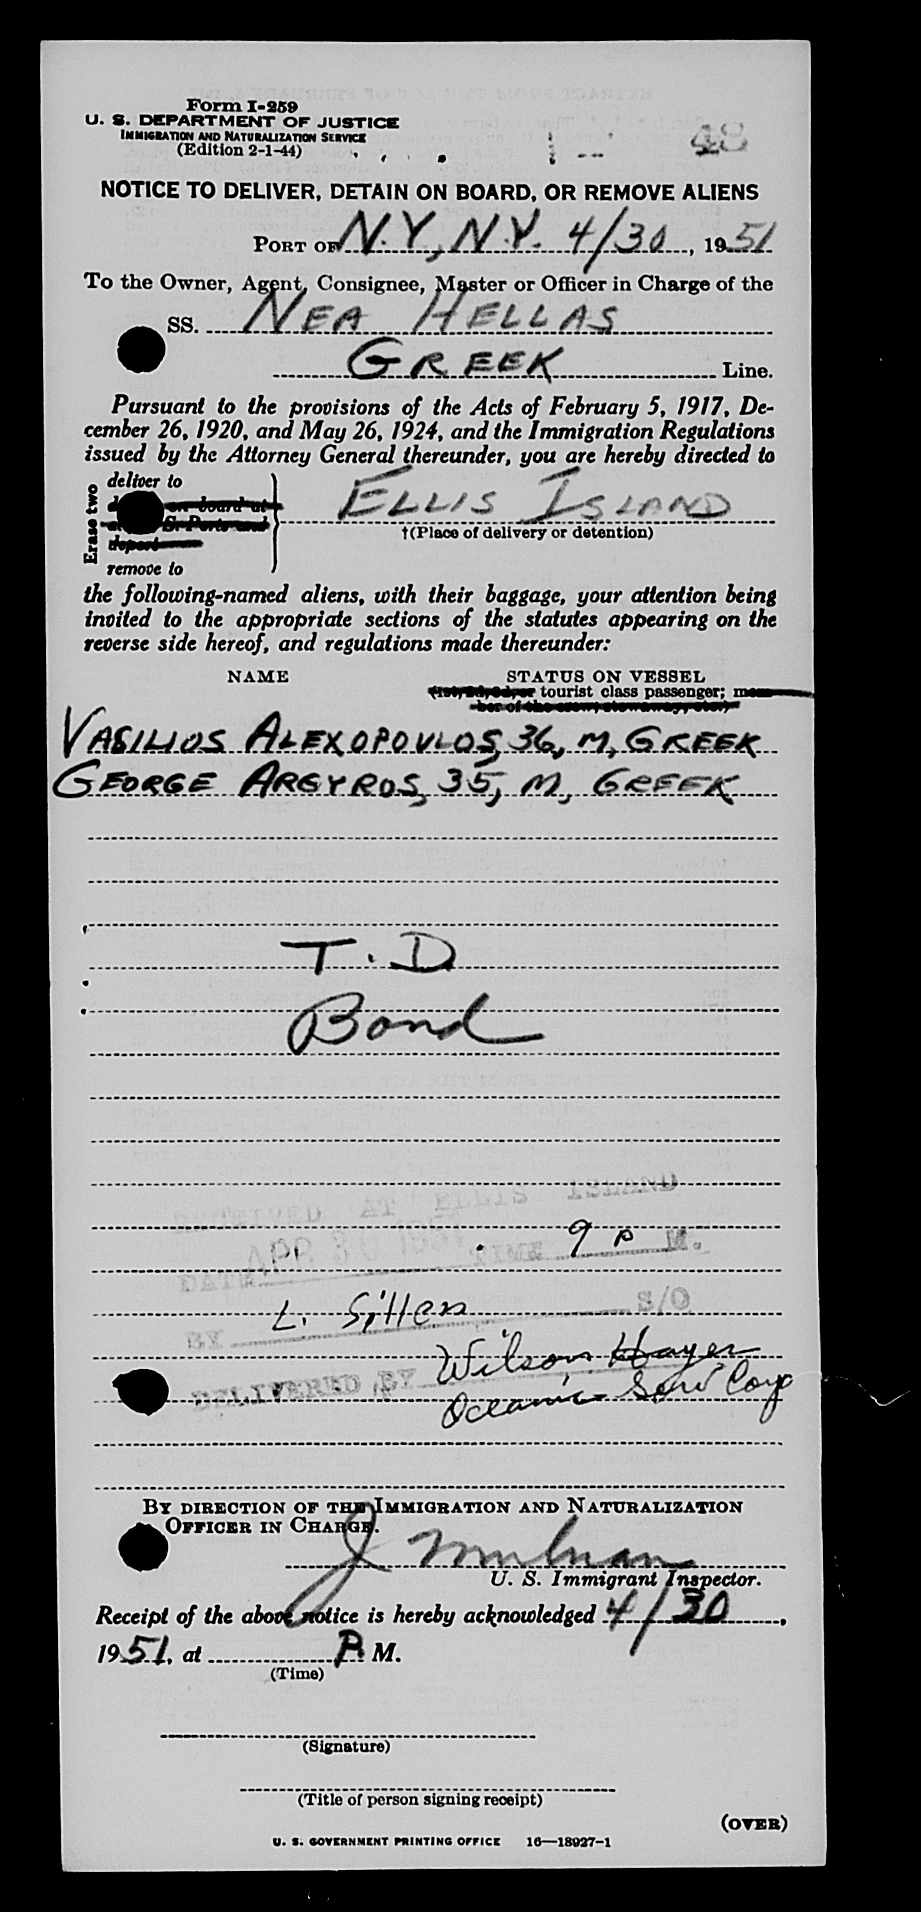 Form I-259
U. S. DEPARTMENT OF JUSTICE
IMMIGRATION AND NATURALIZATION SERVICE
(Edition 2-1-44)
48
NOTICE TO DELIVER, DETAIN ON BOARD, OR REMOVE ALIENS
PORT OF N.Y., N.Y. 4/30, 1951
To the Owner, Agent, Consignee, Master or Officer in Charge of the
SS. NEA HELLAS
GREEK Line.
Pursuant to the provisions of the Acts of February 5, 1917, De-
cember 26, 1920, and May 26, 1924, and the Immigration Regulations
issued by the Attorney General thereunder, you are hereby directed to
Erase two
deliver to
on board at
S. Ports and
depart
remove to
ELLIS ISLAND
†(Place of delivery or detention)
the following-named aliens, with their baggage, your attention being
invited to the appropriate sections of the statutes appearing on the
reverse side hereof, and regulations made thereunder:
NAME STATUS ON VESSEL
(1st, 2d, 3d, or tourist class passenger; mem-
ber of the crew, stowaway, etc.)
VASILIOS ALEXOPOVLOS, 36, M, GREEK
GEORGE ARGYROS, 35, M, GREEK
T.D
Bond
RECEIVED AT ELLIS ISLAND
DATE APR 30 1951 TIME 9 P M.
BY L. Sillen S/O
DELIVERED BY Wilson Hayer
Oceanic Serv Corp
BY DIRECTION OF THE IMMIGRATION AND NATURALIZATION
OFFICER IN CHARGE.
J
U. S. Immigrant Inspector.
Receipt of the above notice is hereby acknowledged 4/30,
1951, at P. M.
(Time)
(Signature)
(Title of person signing receipt)
(OVER)
U. S. GOVERNMENT PRINTING OFFICE 16—18927-1